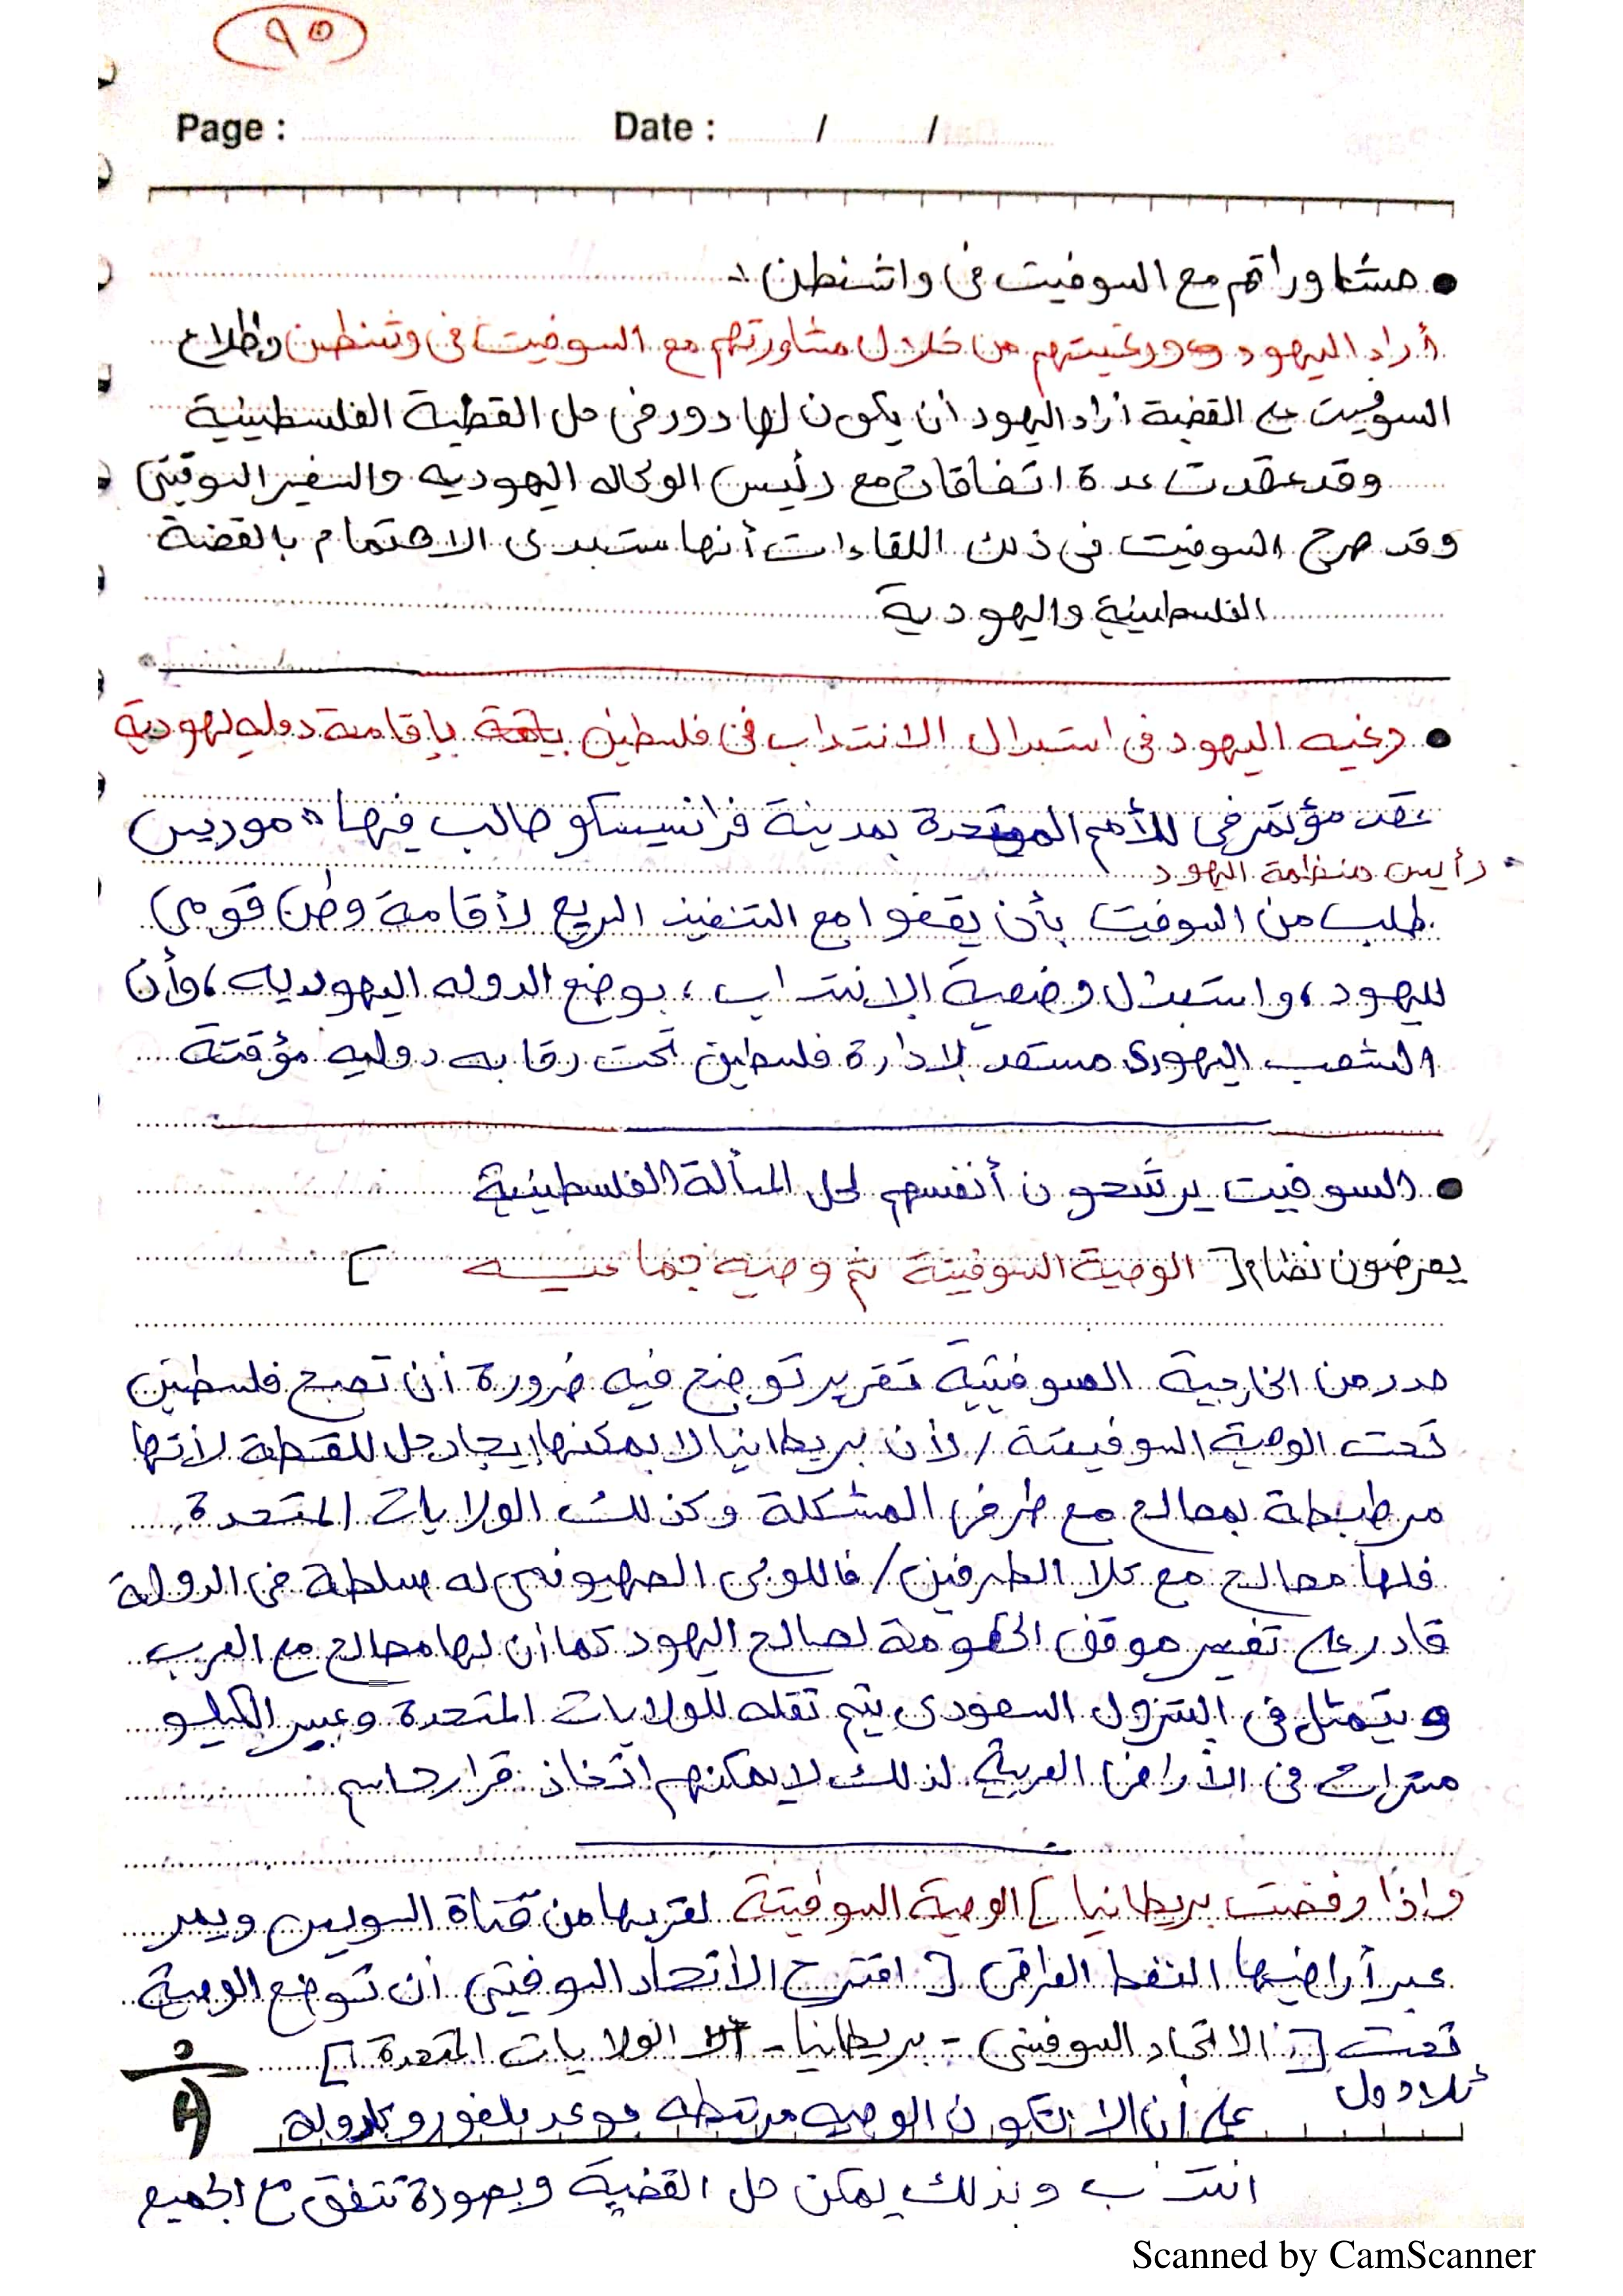 ٩٥
Page : Date : / /
• مشاوراتهم مع السوفيت فى واشنطن :-
أراد اليهود ورغبتهم من خلال مشاورتهم مع السوفيت فى وشنطن وإطلاع
السوفيت على القضية أراد اليهود أن يكون لها دور فى حل القضية الفلسطينية
وقد عقدت عدة اتفاقات مع رئيس الوكاله اليهوديه والسفير السوفيتى
وقد صرح السوفيت فى ذلك اللقاءات أنها ستبدى الاهتمام بالقضة
الفلسطينية واليهودية
• رغبه اليهود فى استبدال الانتداب فى فلسطين بإقامة دوله يهودية
عقد مؤتمر فى للأمم المتحدة بمدينة فرانسيسكو طالب فيها " موريس
رأيس منظمة اليهود
طلب من السوفيت بأن يقفوا مع التنفيذ السريع لأقامة وطن قومى
لليهود ، واستبدال وضعية الانتداب ، بوضع الدوله اليهوديه ، وأن
الشعب اليهودى مستعد لادارة فلسطين تحت رقابه دوليه مؤقتة
• السوفيت يرشحون أنفسهم لحل المسألة الفلسطينية
يعرضون نضام [ الوصية السوفيتة ثم وصيه جماعيه ]
صدر من الخارجية السوفيتية تقرير توضح فيه ضرورة أن تصبح فلسطين
تحت الوصية السوفيتة / لأن بريطانيا لا يمكنها إيجاد حل للقطة لأنها
مرطبطة بمصالح مع طرفى المشكلة وكذلك الولايات المتحدة
فلها مصالح مع كلا الطرفين / فاللوبى الصهيونى له سلطة فى الدولة
قادر على تغيير موقف الحكومة لصالح اليهود كما أن لها مصالح مع العرب
ويتمثل فى البترول السعودى يتم نقله للولايات المتحدة وعبر الكيلو
مترات فى الأراضى العربية لذلك لا يمكنهم اتخاذ قرار حاسم
واذا رفضت بريطانيا [ الوصية السوفيتة لقربها من قناة السويس ويمر
عبر أراضيها النفط العراقى ] اقترح الأتحاد السوفيتى أن توضع الوصية
تحت [ الاتحاد السوفيتى - بريطانيا - الولايات المتحدة ]
ثلاث دول
على أن لا تكون الوصيه مرتبطه بوعد بلفور وكدولة
انتداب وبذلك يمكن حل القضية وبصورة تتفق مع الجميع
Scanned by CamScanner